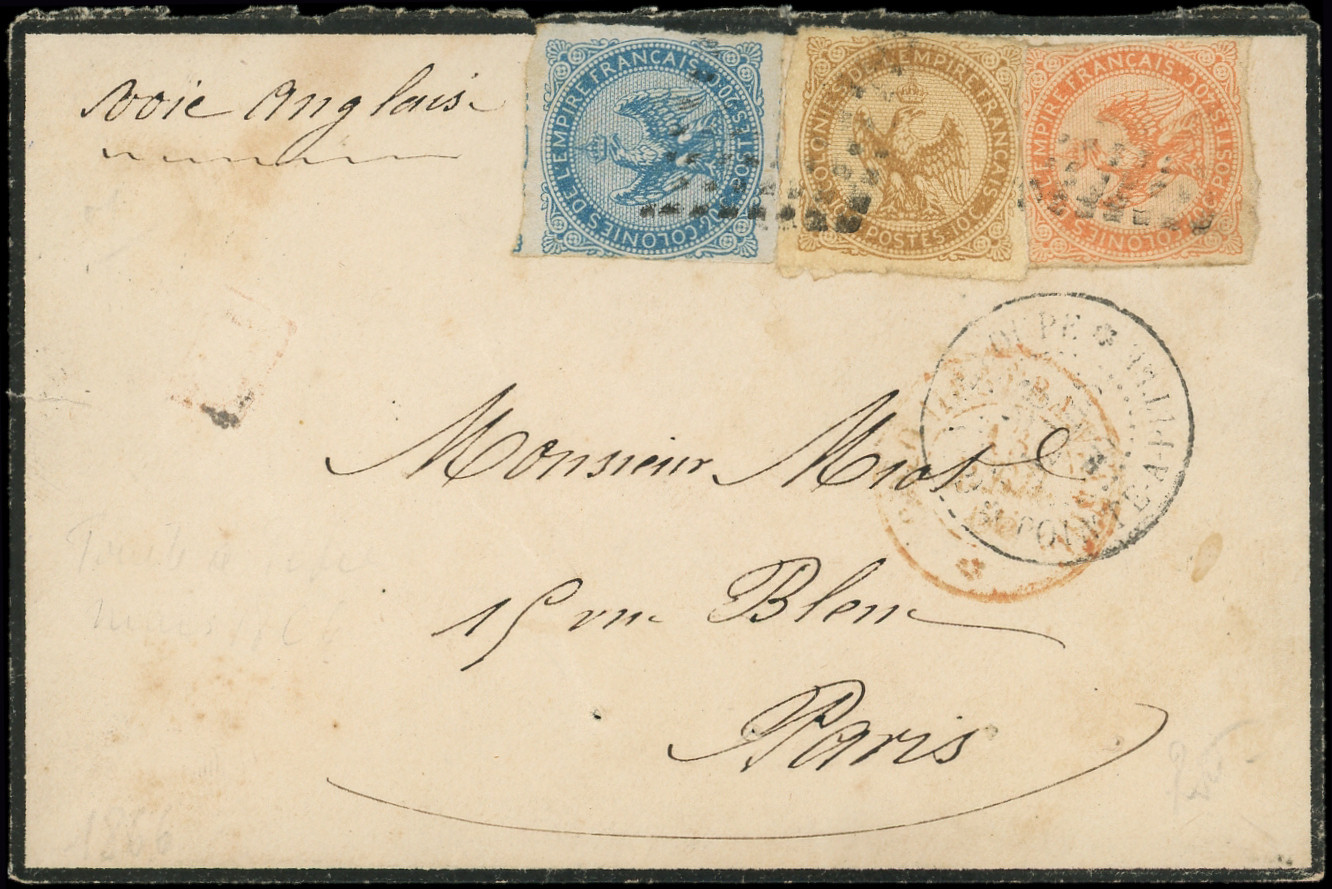 voie Anglaise
COLONIES DE L'EMPIRE FRANÇAIS · POSTES 20C ·
COLONIES DE L'EMPIRE FRANÇAIS · POSTES · 10C ·
COLONIES DE L'EMPIRE FRANÇAIS · POSTES · 40C ·
POINTE-A-PITRE
Monsieur Miot
15 rue Bleue
Paris
1866